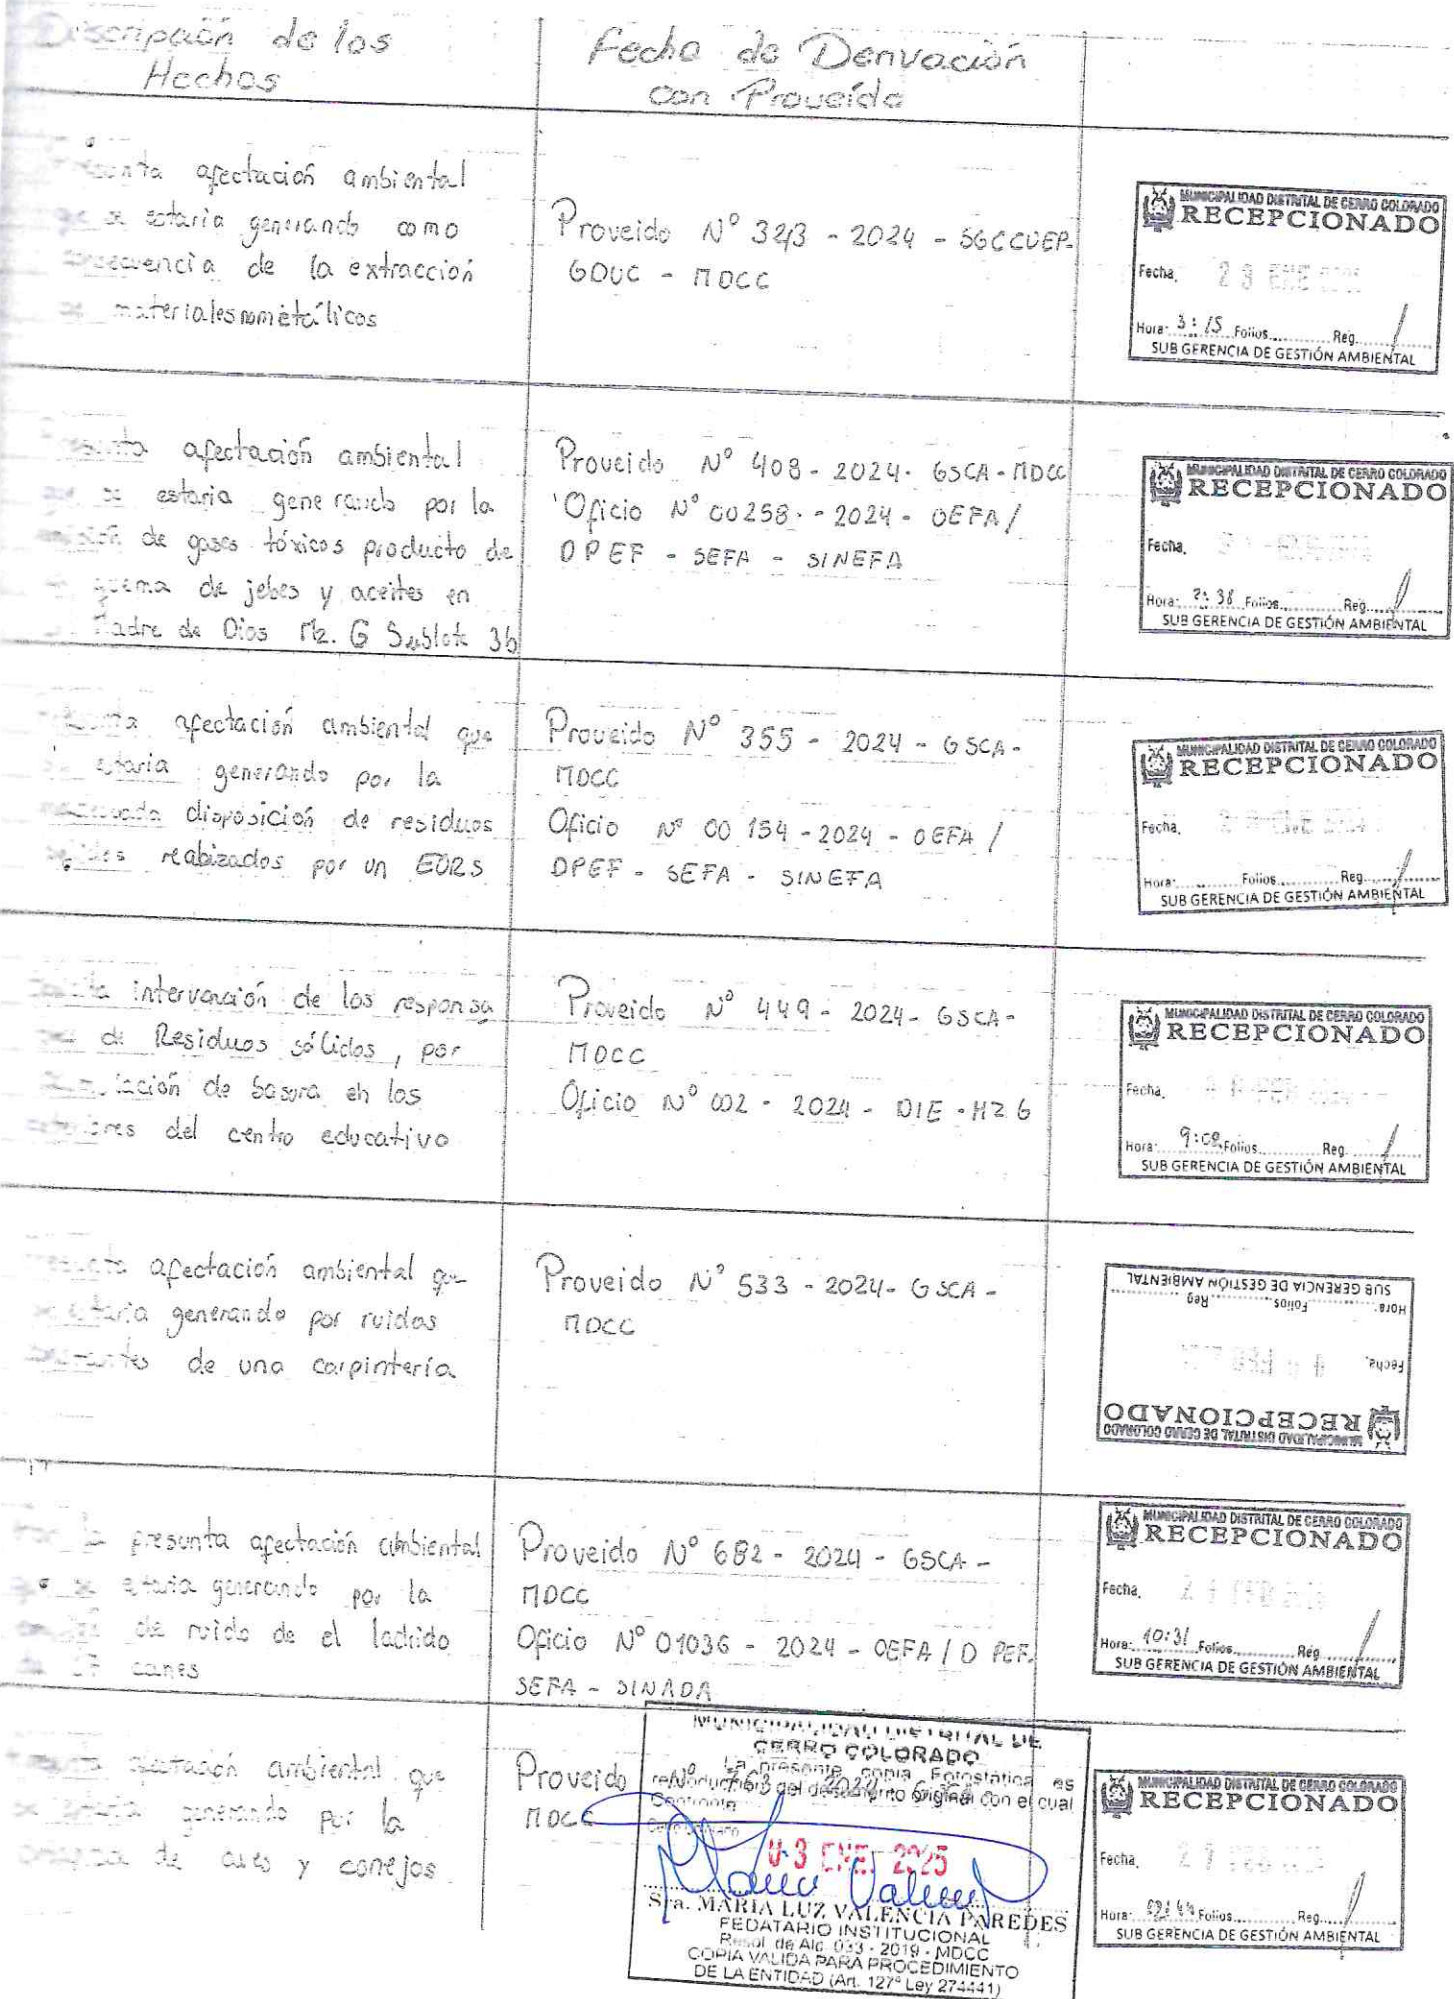 Descripción de los
Hechos
Fecha de Derivación
con Proveído
afectación ambiental
se estaria generando como
de la extracción
materiales nometálicos
Proveido N° 323 - 2024 - SGCCUEP-
GDUC - MDCC
MUNICIPALIDAD DISTRITAL DE CERRO COLORADO
RECEPCIONADO
Fecha, 23 ENE
Hora: 3:15 Folios............Reg.........
SUB GERENCIA DE GESTIÓN AMBIENTAL
afectación ambiental
se estaria generando por la
de gases tóxicos producto de
quema de jebes y aceites en
Madre de Dios Mz. G Sublote 3b
Proveido N° 408 - 2024 - GSCA - MDCC
Oficio N° 00258 - 2024 - OEFA /
DPEF - SEFA - SINEFA
MUNICIPALIDAD DISTRITAL DE CERRO COLORADO
RECEPCIONADO
Fecha,
Hora: 2:38 Folios............Reg.........
SUB GERENCIA DE GESTIÓN AMBIENTAL
afectación ambiental que
estaria generando por la
disposición de residuos
reabizados por un EORS
Proveido N° 355 - 2024 - GSCA -
MDCC
Oficio N° 00154 - 2024 - OEFA /
DPEF - SEFA - SINEFA
MUNICIPALIDAD DISTRITAL DE CERRO COLORADO
RECEPCIONADO
Fecha,
Hora:............Folios............Reg.........
SUB GERENCIA DE GESTIÓN AMBIENTAL
intervención de los responsa
de Residuos sólidos, por
de basura en los
del centro educativo
Proveido N° 449 - 2024 - GSCA -
MDCC
Oficio N° 002 - 2024 - DIE - HZ G
MUNICIPALIDAD DISTRITAL DE CERRO COLORADO
RECEPCIONADO
Fecha,
Hora: 9:02 Folios............Reg.........
SUB GERENCIA DE GESTIÓN AMBIENTAL
afectación ambiental que
generando por ruidos
de una carpintería
Proveido N° 533 - 2024 - GSCA -
MDCC
MUNICIPALIDAD DISTRITAL DE CERRO COLORADO
RECEPCIONADO
Fecha,
Hora:............Folios............Reg.........
SUB GERENCIA DE GESTIÓN AMBIENTAL
presunta afectación ambiental
se estaria generando por la
de ruido de el ladrido
canes
Proveido N° 682 - 2024 - GSCA -
MDCC
Oficio N° 01036 - 2024 - OEFA / D PEF.
SEFA - SINADA
MUNICIPALIDAD DISTRITAL DE CERRO COLORADO
RECEPCIONADO
Fecha,
Hora: 10:31 Folios............Reg.........
SUB GERENCIA DE GESTIÓN AMBIENTAL
afectación ambiental que
generando por la
de aves y conejos
Proveido N° 763 2024
MDCC
MUNICIPALIDAD DISTRITAL DE
CERRO COLORADO
La presente copia Fotostática es
reproducción del documento original con el cual
03 ENE 2025
Sra. MARIA LUZ VALENCIA PAREDES
FEDATARIO INSTITUCIONAL
Resol. de Alc. 033 - 2019 - MDCC
COPIA VALIDA PARA PROCEDIMIENTO
DE LA ENTIDAD (Art. 127° Ley 274441)
MUNICIPALIDAD DISTRITAL DE CERRO COLORADO
RECEPCIONADO
Fecha,
Hora: Folios............Reg.........
SUB GERENCIA DE GESTIÓN AMBIENTAL